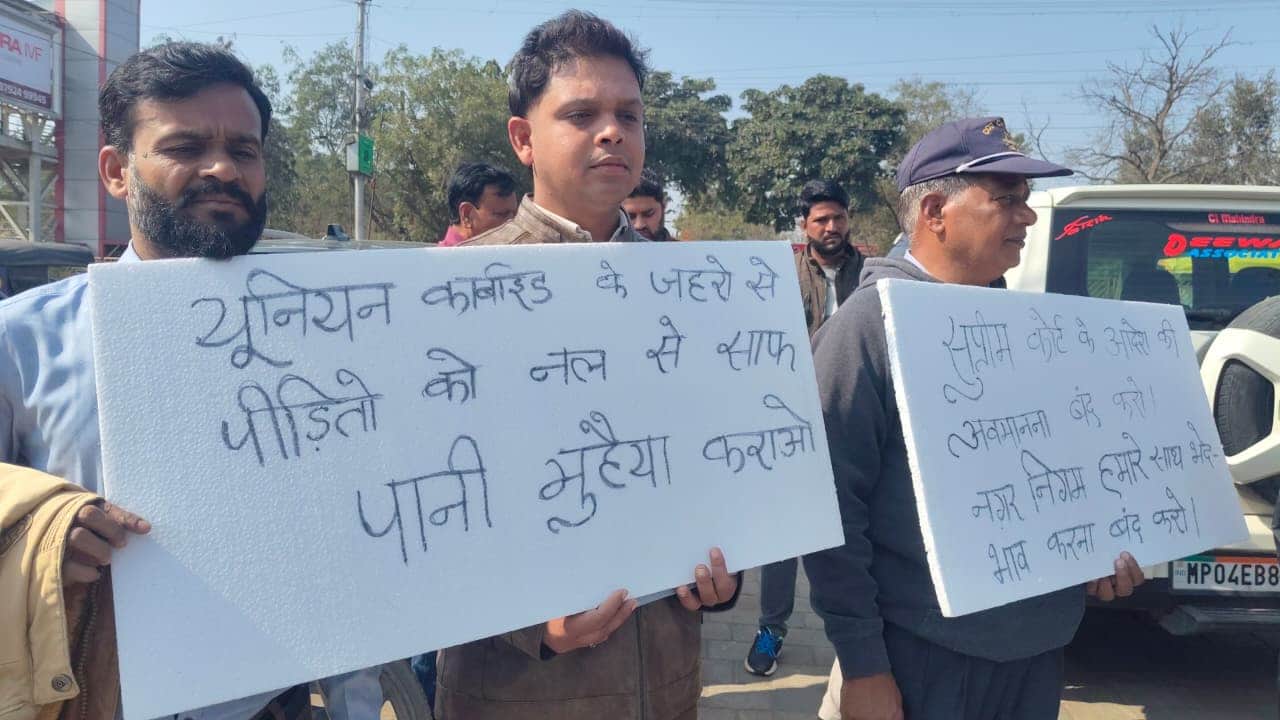 RA IVF
97924 99945
यूनियन कार्बाइड के जहरो से
पीड़ितो को नल से साफ
पानी मुहैया कराओ
सुप्रीम कोर्ट के आदेश की
अवमानना बंद करो।
नग़र निगम हमारे साथ भेद-
भाव करना बंद करो।
CI Mahindra
DEEWA
ASSOCIAT
IND MP04EB8